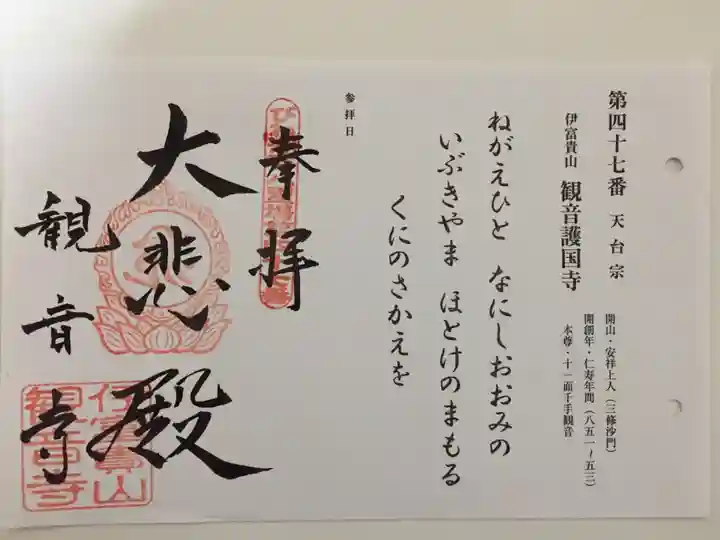 第四十七番 天台宗
伊富貴山 観音護国寺
開山・安祥上人（三修沙門）
開創年・仁寿年間（八五一～五三）
本尊・十一面千手観音
ねがえひと なにしおおみの
いぶきやま ほとけのまもる
くにのさかえを
参拝日
奉拝
大悲殿
観音寺